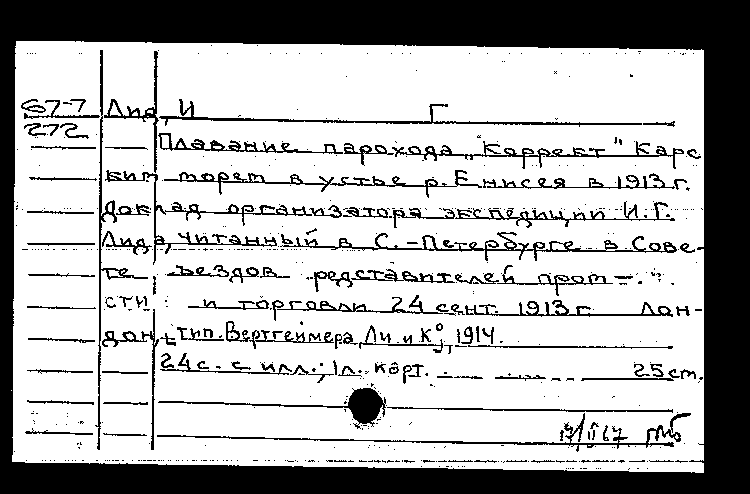 67-7 Лид, И Г
272
Плавание парохода „Коррект" Карс
ким морем в устье р. Енисея в 1913 г.
Доклад организатора экспедиции И.Г.
Лида, читанный в С.-Петербурге в Сове-
те ъездов редставителей пром
сти и торговли 24 сент. 1913 г Лон-
дон, тип. Вертгеймера, Ли и К°, 1914.
24 с. с илл.; 1 л. карт. 25 см.
17/II 67